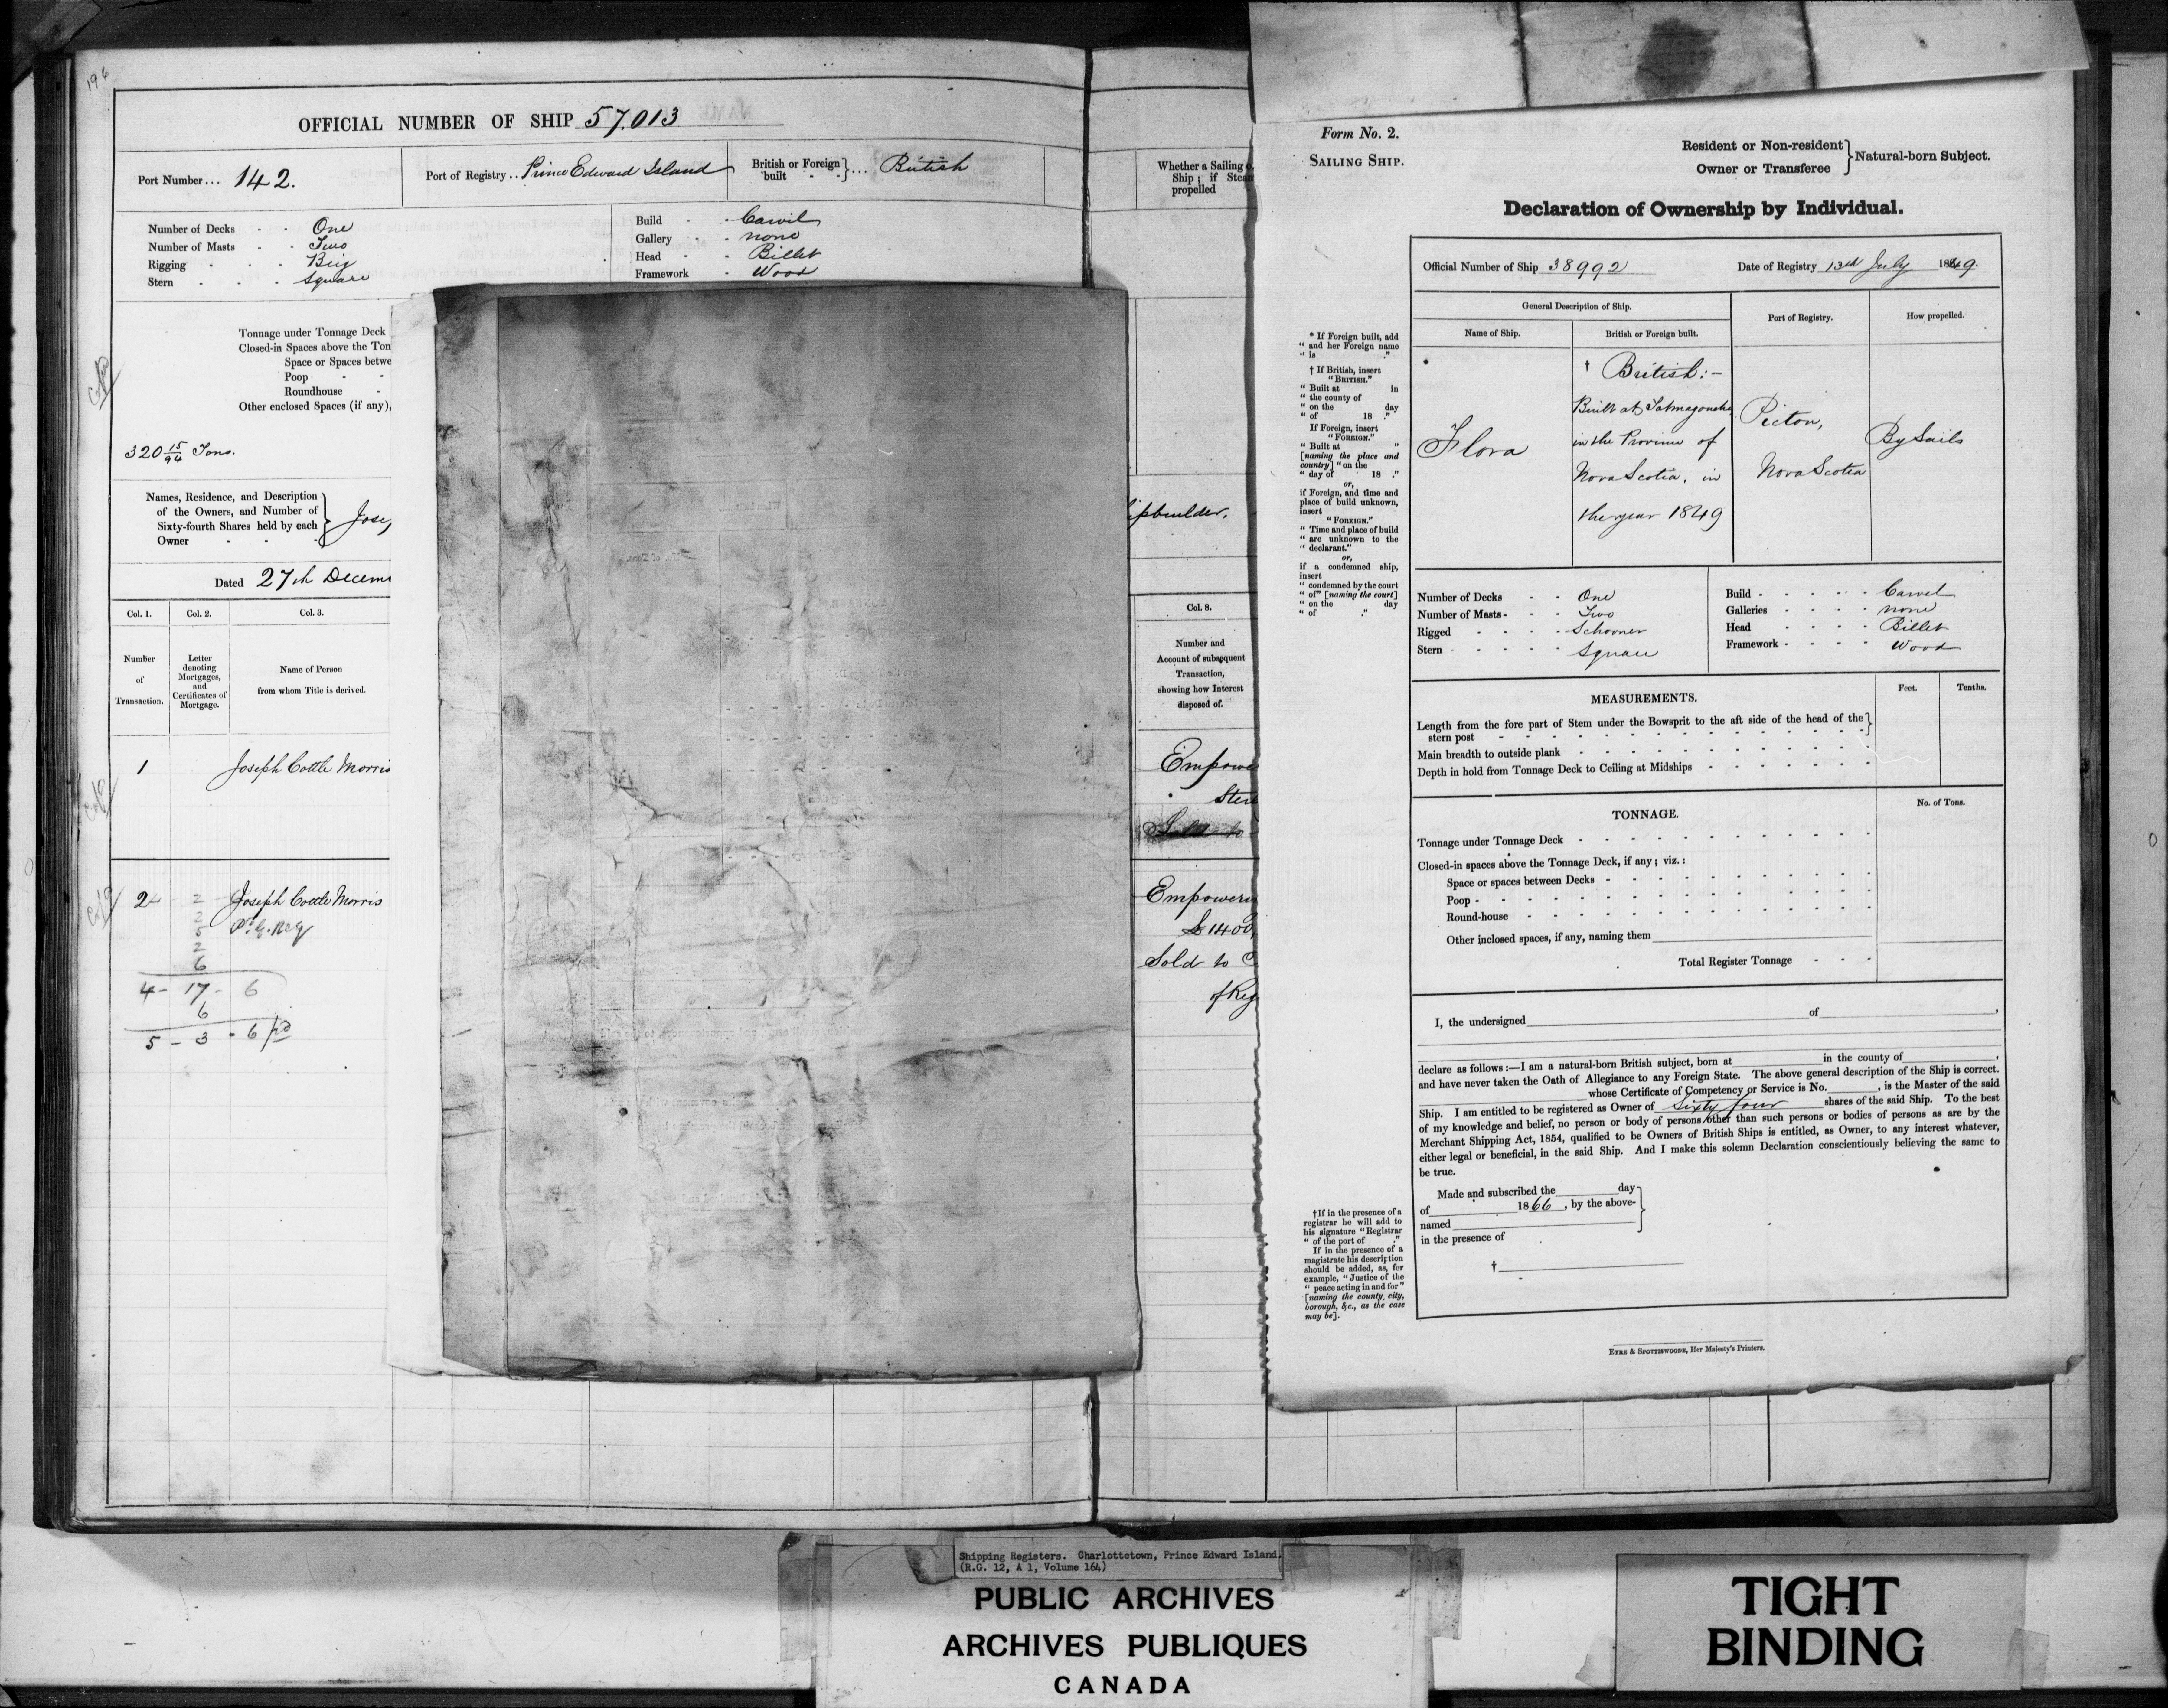 196
OFFICIAL NUMBER OF SHIP 57,013
Port Number... 142.
Port of Registry.. Prince Edward Island
British or Foreign built - - } ... British
Number of Decks - - One
Number of Masts - - Two
Rigging - - - Brig
Stern - - - Square
Build - - Carvil
Gallery - - none
Head - - Billet
Framework - Wood
Tonnage under Tonnage Deck
Closed-in Spaces above the Ton
Space or Spaces betwe
Poop - -
Roundhouse -
Other enclosed Spaces (if any),
320 15/94 Tons.
Names, Residence, and Description
of the Owners, and Number of
Sixty-fourth Shares held by each
Owner - - - } Jose
Dated 27th Decem
Col. 1. Col. 2. Col. 3.
Number of Transaction.
Letter denoting Mortgages, and Certificates of Mortgage.
Name of Person from whom Title is derived.
1 Joseph Cottle Morris
2 Joseph Cottle Morris
2
2
5
2
6
4 - 17 - 6
6
5 - 3 - 6
Whether a Sailing o
Ship; if Stea
propelled
ipbuilder.
Col. 8.
Number and
Account of subsequent
Transaction,
showing how Interest
disposed of.
Empowe
Ster
Empowering
£1400
Sold to C
of Reg
Form No. 2.
SAILING SHIP.
Resident or Non-resident
Owner or Transferee } Natural-born Subject.
Declaration of Ownership by Individual.
Official Number of Ship 38992
Date of Registry 13th July 1849
General Description of Ship.
Name of Ship.
British or Foreign built.
Port of Registry.
How propelled.
*
Flora
† British:-
Built at Tatmagouche
in the Province of
Nova Scotia, in
the year 1849
Pictou,
Nova Scotia
By Sails
* If Foreign built, add
" and her Foreign name
" is ."
† If British, insert
"BRITISH."
" Built at in
" the county of
" on the day
" of 18 ."
If Foreign, insert
"FOREIGN."
" Built at "
[naming the place and
country] "on the
" day of 18 ."
or,
if Foreign, and time and
place of build unknown,
insert
"FOREIGN."
" Time and place of build
" are unknown to the
" declarant."
or,
if a condemned ship,
insert
" condemned by the court
" of" [naming the court]
" on the day
" of ."
Number of Decks - - One
Number of Masts - - - Two
Rigged - - - - Schooner
Stern - - - - - Square
Build - - - - - Carvel
Galleries - - - - none
Head - - - - Billet
Framework - - - - Wood
MEASUREMENTS.
Feet. Tenths.
Length from the fore part of Stem under the Bowsprit to the aft side of the head of the
stern post
Main breadth to outside plank
Depth in hold from Tonnage Deck to Ceiling at Midships
TONNAGE.
No. of Tons.
Tonnage under Tonnage Deck
Closed-in spaces above the Tonnage Deck, if any; viz.:
Space or spaces between Decks
Poop
Round-house
Other inclosed spaces, if any, naming them
Total Register Tonnage
I, the undersigned of ,
declare as follows:—I am a natural-born British subject, born at in the county of ,
and have never taken the Oath of Allegiance to any Foreign State. The above general description of the Ship is correct.
whose Certificate of Competency or Service is No. , is the Master of the said
Ship. I am entitled to be registered as Owner of Sixty four shares of the said Ship. To the best
of my knowledge and belief, no person or body of persons other than such persons or bodies of persons as are by the
Merchant Shipping Act, 1854, qualified to be Owners of British Ships is entitled, as Owner, to any interest whatever,
either legal or beneficial, in the said Ship. And I make this solemn Declaration conscientiously believing the same to
be true.
Made and subscribed the day
of 1866, by the above-
named
in the presence of
†
†If in the presence of a
registrar he will add to
his signature "Registrar
" of the port of ."
If in the presence of a
magistrate his description
should be added, as, for
example, "Justice of the
" peace acting in and for"
[naming the county, city,
borough, &c., as the case
may be].
EYRE & SPOTTISWOODE, Her Majesty's Printers.
Shipping Registers. Charlottetown, Prince Edward Island.
(R.G. 12, A 1, Volume 164)
PUBLIC ARCHIVES
ARCHIVES PUBLIQUES
CANADA
TIGHT
BINDING